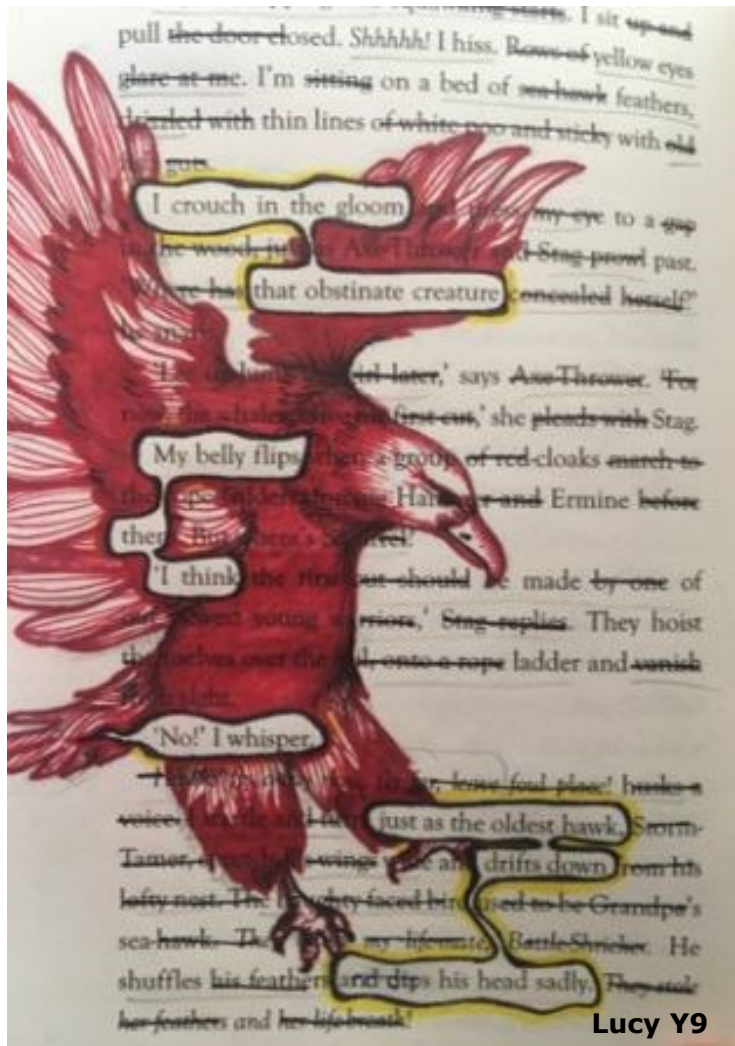 I sit up and
pull the door closed. Shhhhh! I hiss. Rows of yellow eyes
glare at me. I'm sitting on a bed of sea-hawk feathers,
drizzled with thin lines of white poo and sticky with old
guts.
I crouch in the gloom my eye to a gap
in the wood, just as Axe-Thrower and Stag prowl past.
'Where has that obstinate creature concealed herself?'
he
later,' says Axe-Thrower. 'For
now the whales first cut,' she pleads with Stag.
My belly flips when a group of red-cloaks march to
the Ermine before
them. But
'I think the first cut should be made by one of
our young warriors,' Stag replies. They hoist
themselves over the onto a rope ladder and vanish
'No!' I whisper,
leave foul place! husks a
voice. just as the oldest hawk, Storm-
Tamer, wings drifts down from his
lofty nest. The haughty faced bird used to be Grandpa's
sea-hawk. The my life-mate, Battle-Shrieker. He
shuffles his feathers and dips his head sadly. They stole
her feathers and her life breath!
Lucy Y9